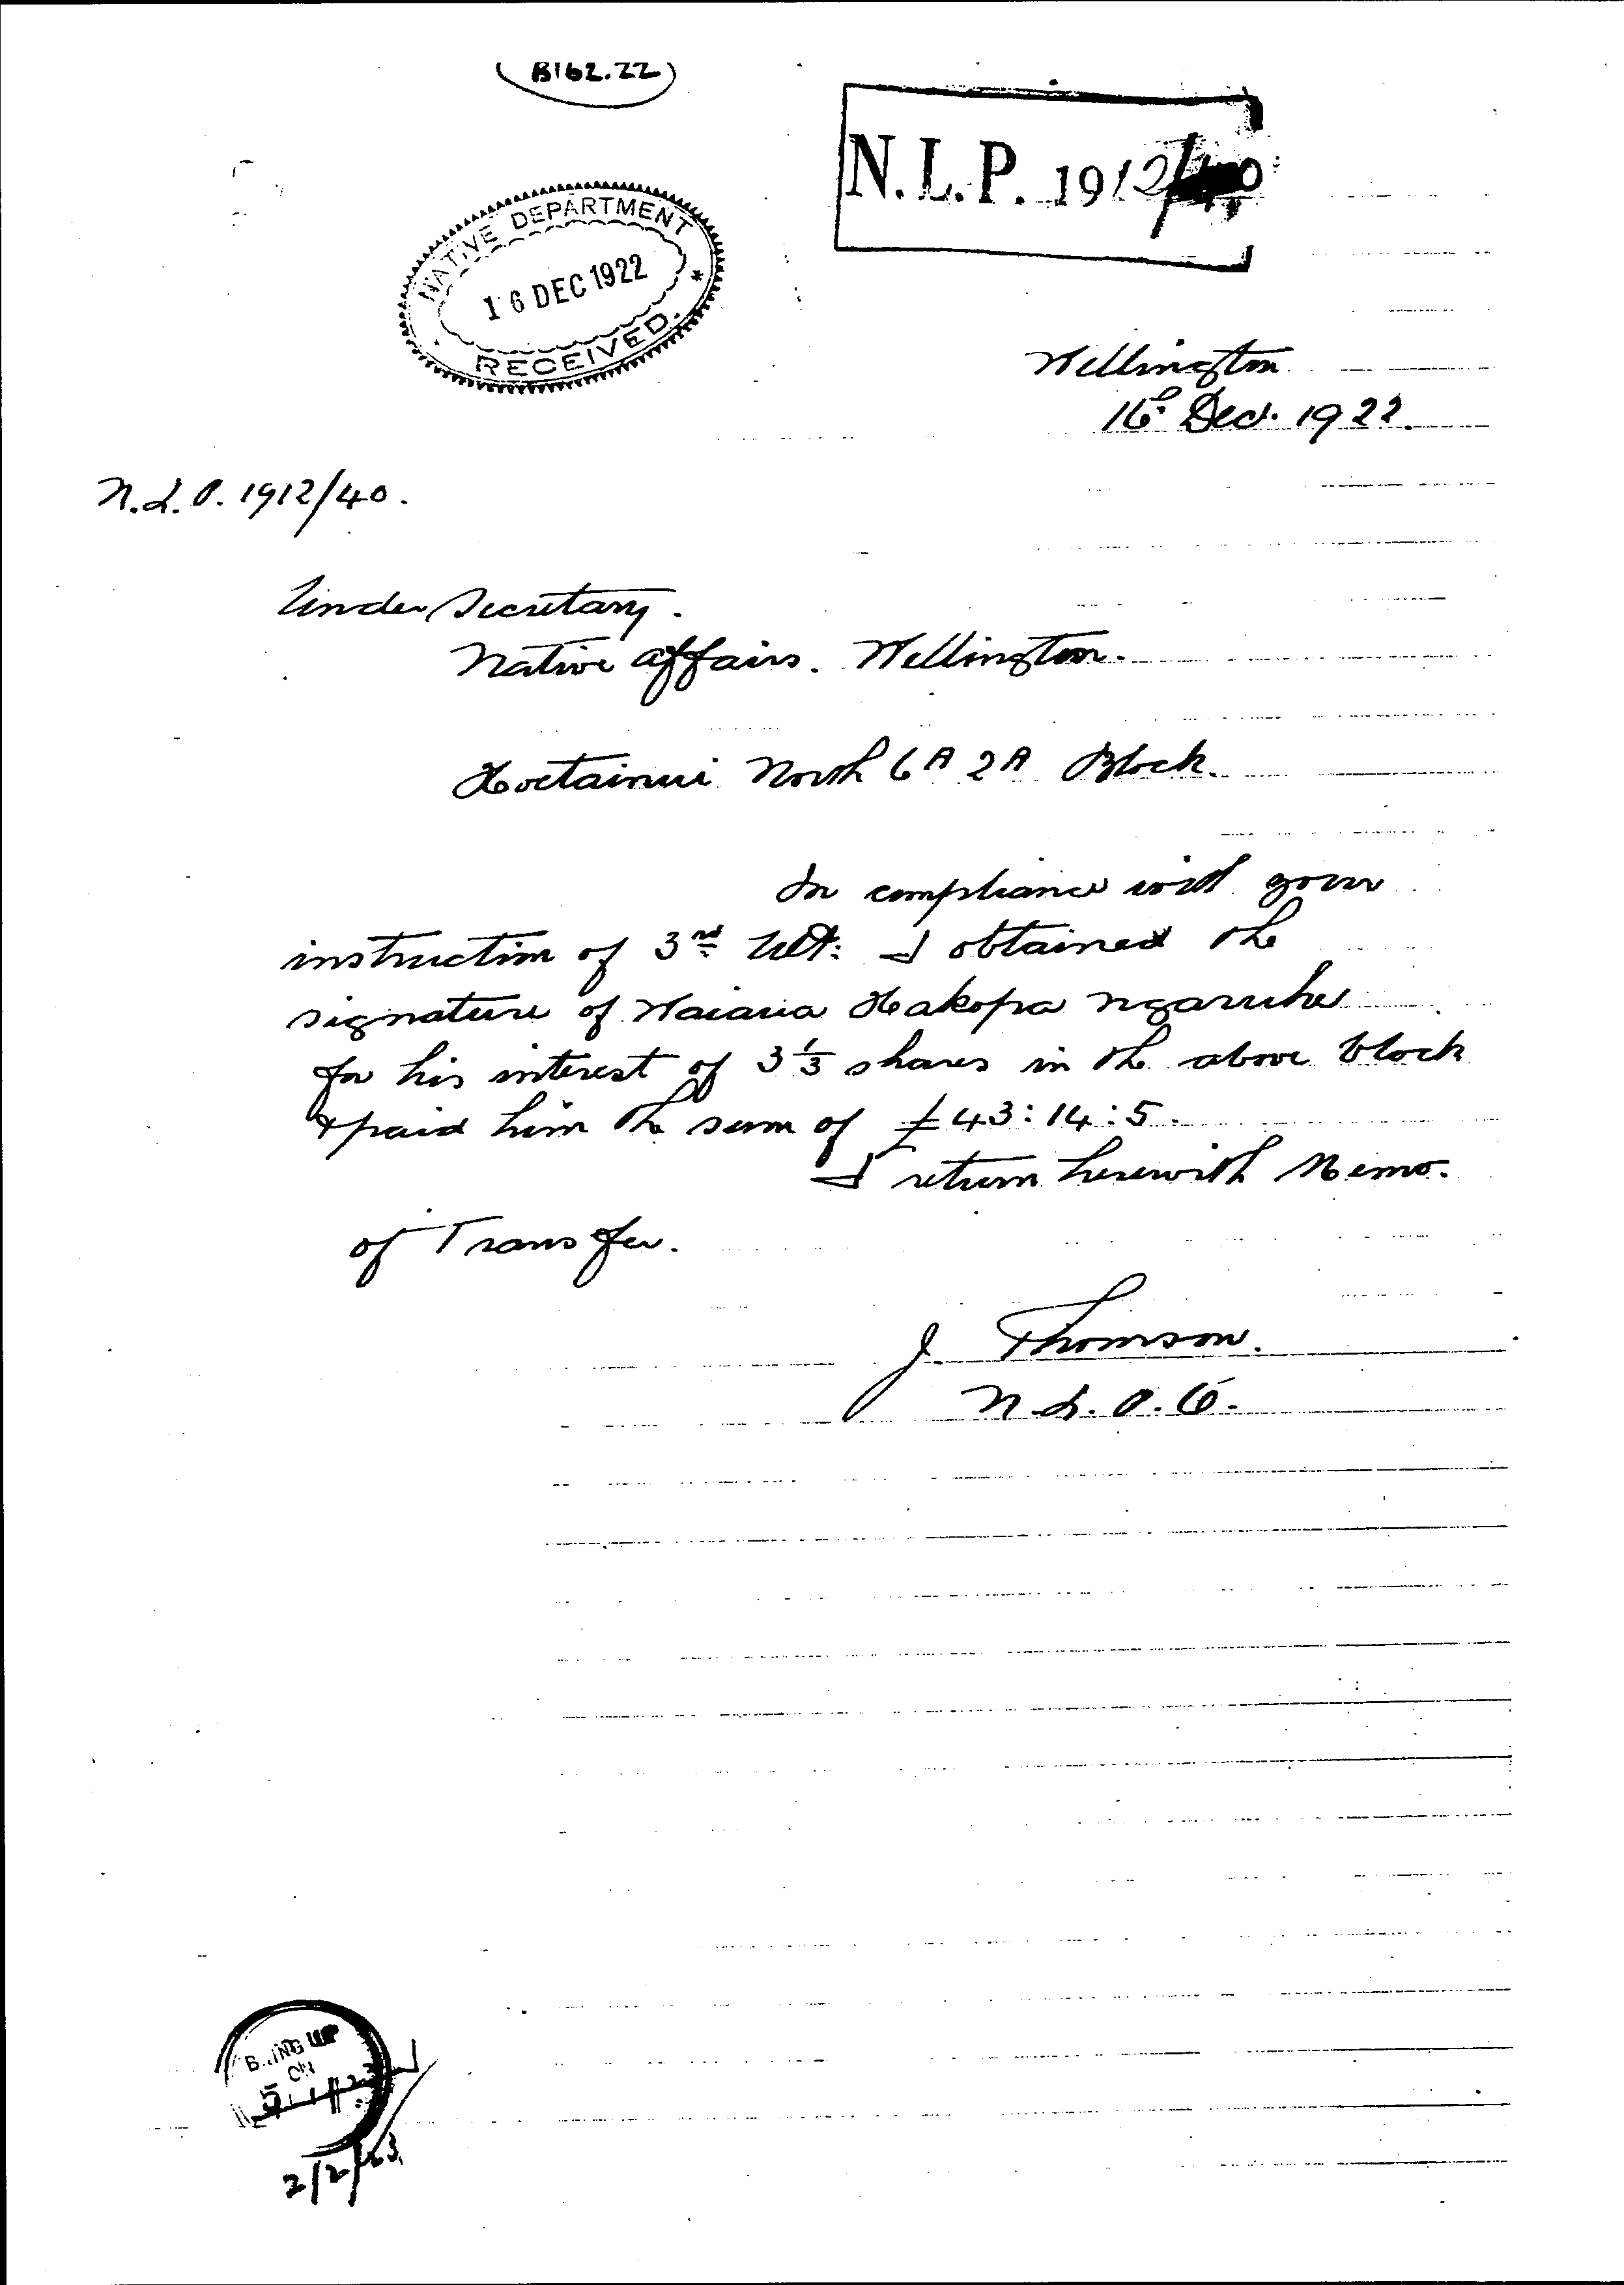 B162.22
N.L.P. 1912/40
NATIVE DEPARTMENT
16 DEC 1922
RECEIVED.
Wellington
16th Dec. 1922.
N.L.P. 1912/40.
Under Secretary.
Native Affairs. Wellington.
Hoetainui North 6A 2A Block.
In compliance with your
instruction of 3rd Ult: I obtained the
signature of Hakopa Ngaruhe
for his interest of 3 1/3 shares in the above block
& paid him the sum of £43:14:5.
I return herewith Memo.
of Transfer.
J. Thomson.
N.L.P.O.
B..ING UP
ON
2/2/23